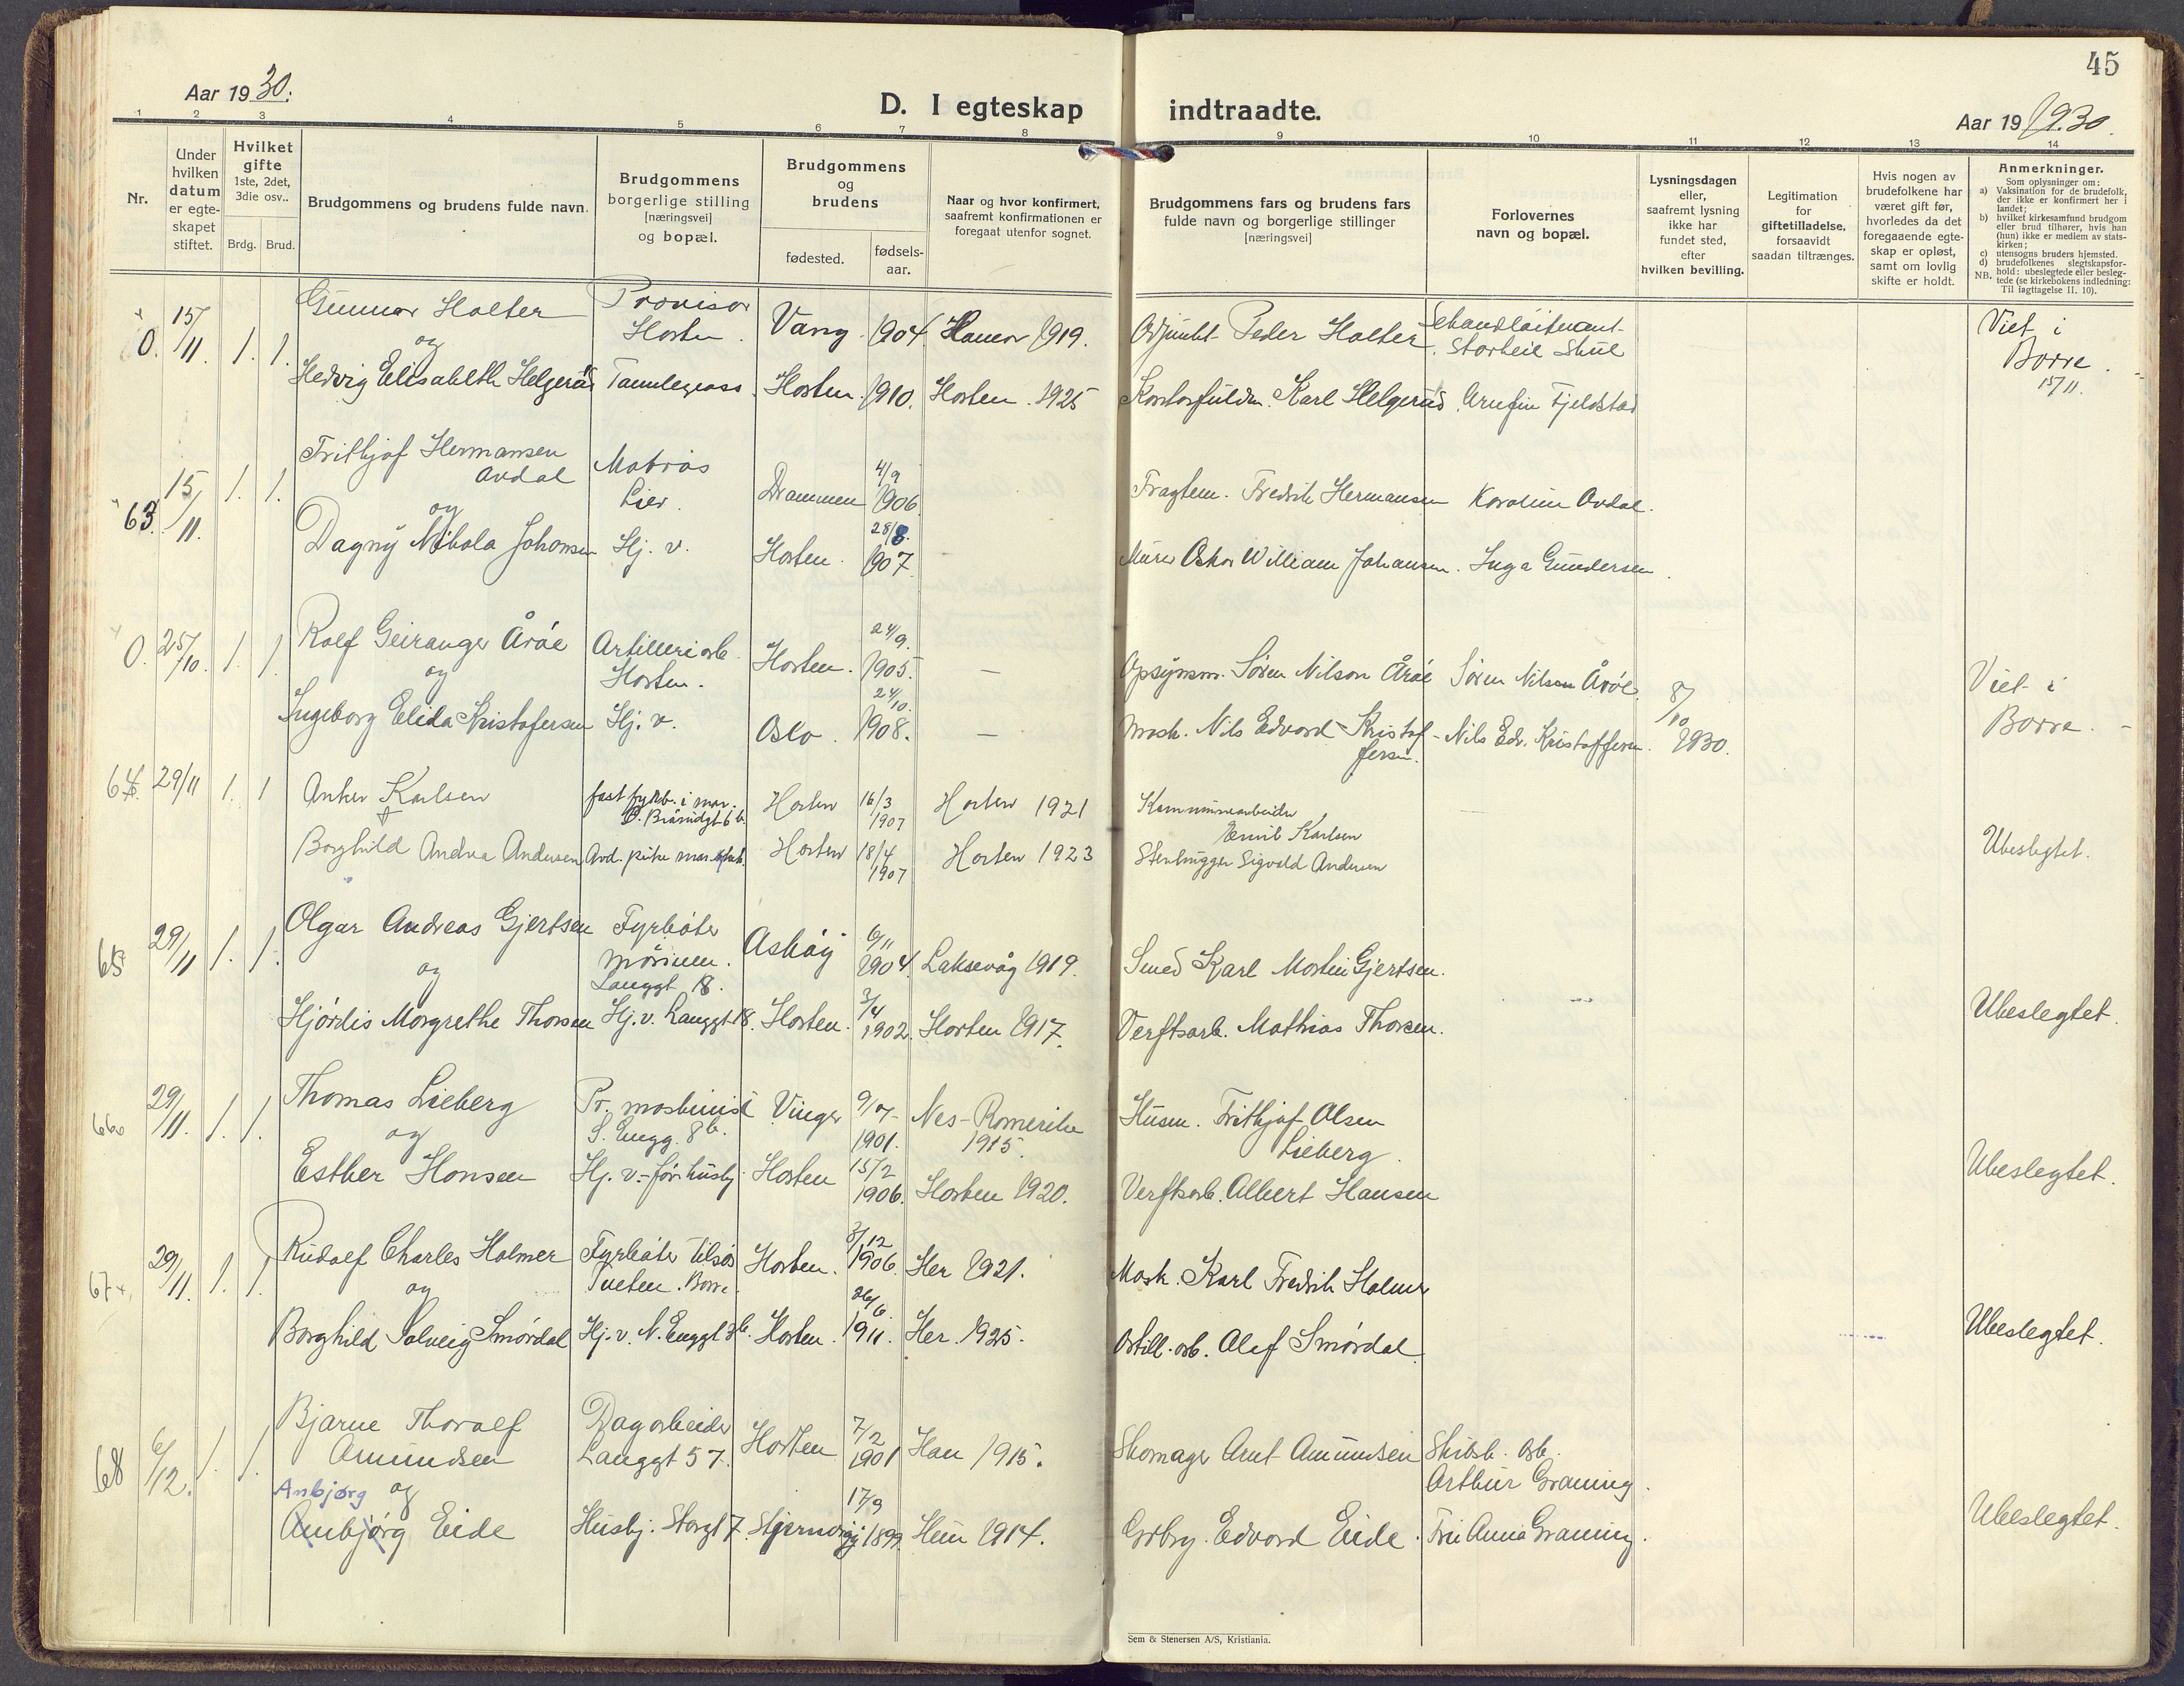 45
Aar 1930.
D. I egteskap
indtraadte.
Aar 19 1930.
1 2 3 4 5 6 7 8 9 10 11 12 13 14
Nr.
Under hvilken datum er egte-skapet stiftet.
Hvilket gifte 1ste, 2det, 3die osv..
Brdg. Brud.
Brudgommens og brudens fulde navn.
Brudgommens borgerlige stilling [næringsvei] og bopæl.
Brudgommens og brudens
fødested.
fødsels-aar.
Naar og hvor konfirmert, saafremt konfirmationen er foregaat utenfor sognet.
Brudgommens fars og brudens fars fulde navn og borgerlige stillinger [næringsvei]
Forlovernes navn og bopæl.
Lysningsdagen eller, saafremt lysning ikke har fundet sted, efter hvilken bevilling.
Legitimation for giftetilladelse, forsaavidt saadan tiltrænges.
Hvis nogen av brudefolkene har været gift før, hvorledes da det foregaaende egte-skap er opløst, samt om lovlig skifte er holdt.
Anmerkninger.
Som oplysninger om:
a) Vaksination for de brudefolk, der ikke er konfirmert her i landet;
b) hvilket kirkesamfund brudgom eller brud tilhører, hvis han (hun) ikke er medlem av stats-kirken;
c) utensogns bruders hjemsted.
d) brudefolkenes slegtskapsfor-hold: ubeslegtede eller besleg-tede (se kirkebokens indledning:
NB. Til iagttagelse II. 10).
0. 15/11. 1. 1. Gunnar Holter Provisor Horten. Vang 1904 Hamar 1919. Adjunkt Peder Holter Viet i Borre. 15/11.
og
Hedvig Elisabeth Helgerud Tannlegeass. Horten. 1910. Horten. 1925 Kontorfuldm. Karl Helgerud. Arnfin Fjeldstad
63. 15/11. 1. 1. Frithjof Hermansen Avdal Matros Lier. Drammen 4/9 1906 Fragtem. Fredrik Hermansen Karoline Avdal.
og
Dagny Nikola Johansen Hj. v. Horten. 28/8. 1907 Murer Oskar William Johansen. Inga Gundersen.
0. 25/10. 1. 1 Rolf Geiranger Årøe Artilleriarb. Horten. Horten. 24/9. 1905. – Opsynsm. Søren Nilson Årøe Søren Nilsen Årøe. 8/10 1930. Viet i Borre.
og
Ingeborg Elida Kristofersen Hj. v. Oslo. 24/10. 1908. – Mask. Nils Edvard Kristoffersen. Nils Edv. Kristoffersen.
64. 29/11 1. 1 Anker Karlsen fast fyrb. i mar. Horten 16/3 1907 Horten 1921 Kommunearbeider Emil Karlsen
Borghild Andrea Andersen Horten 18/4 1907 Horten 1923 Stenhugger Sigvald Andersen Ubeslegtet.
65 29/11 1. 1. Olgar Andreas Gjertsen Fyrbøter marinen. Langgt 18. Askøy 6/11 1904 Laksevåg 1919. Smed Karl Martin Gjertsen.
og
Hjørdis Margrethe Thorsen Hj. v. Langgt 18. Horten. 3/4 1902. Horten 1917. Verftsarb. Mathias Thorsen. Ubeslegtet.
66. 29/11. 1. 1. Thomas Lieberg Pr. maskinist S. Engg. 8b. Vinger 9/7 1901. Nes-Romerike 1915. Husm. Frithjof Olsen Lieberg.
og
Esther Hansen Hj. v. før husbj. Horten 15/2 1906. Horten 1920. Verftsarb. Albert Hansen Ubeslegtet.
67. 29/11. 1. 1. Rudolf Charles Holmer Fyrbøter tilsjøs Tveten. Borre. Horten. 3/12 1906. Her 1921. Mask. Karl Fredrik Holmer
og
Borghild Solveig Smørdal Hj. v. N. Enggt 3b. Horten. 26/6 1911. Her. 1925. Artill. arb. Olaf Smørdal. Ubeslegtet.
68 6/12. 1. 1. Bjarne Thoralf Amundsen Dagarbeider Langgt 57. Horten 7/2 1901 Han 1915. Skomager Arnt Amundsen Skibsb. arb. Arthur Graning.
Anbjørg og
Anbjørg Eide Husbj. Storgt 7. 17/9 1899 Hun 1914. Grbrg. Edvard Eide. Fru Anna Graning. Ubeslegtet.
Sem & Stenersen A/S, Kristiania.